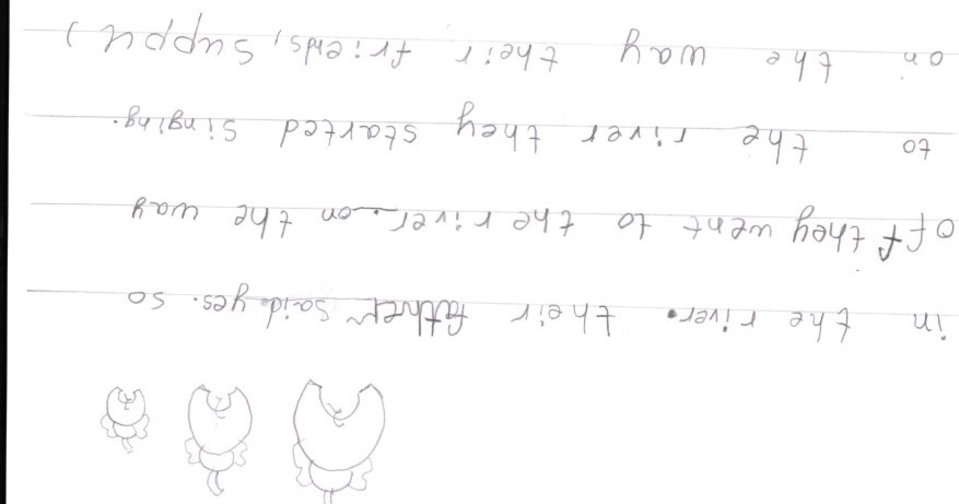 in the river. their father said yes. so
off they went to the river. on the way
to the river they started singing.
on the way their friends, suppu )